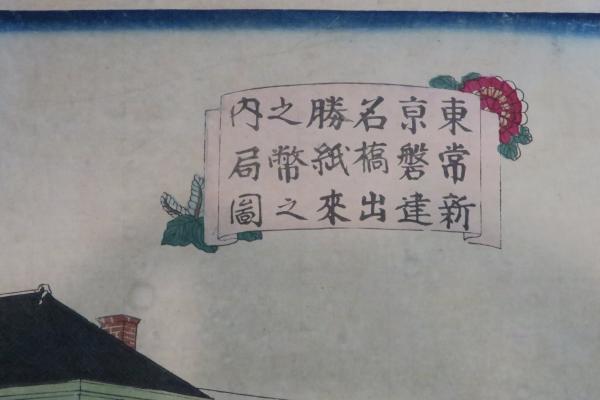 東亰名勝之内
常磐橋紙幣局
新建出來之圖